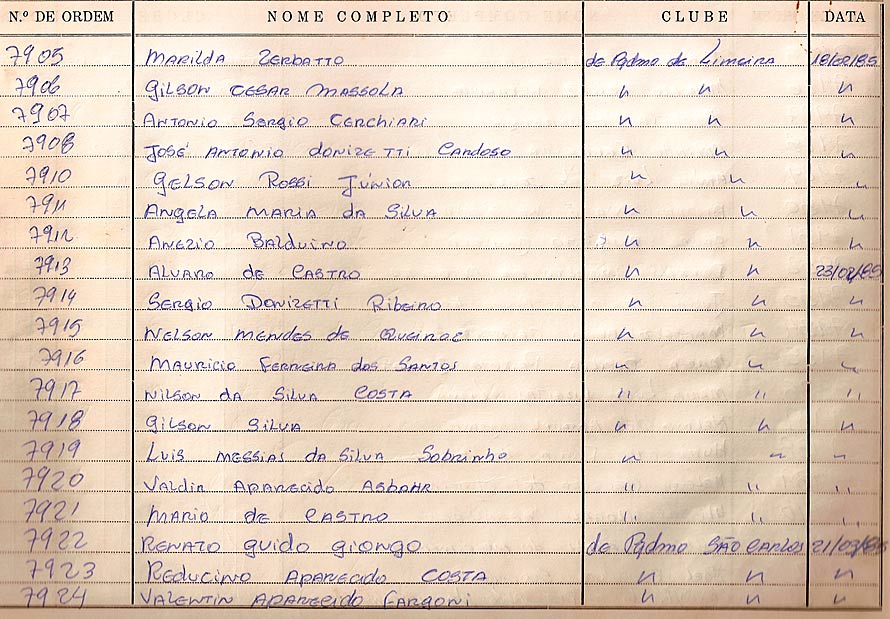 N.º DE ORDEM NOME COMPLETO CLUBE DATA
7905 Marilda Zerbatto de Pqdmo de Limeira 18/02/85
7906 Gilson Cesar Massola " " "
7907 Antonio Sergio Cerchiari " " "
7908 José Antonio Donizetti Cardoso " " "
7910 Gelson Rossi Júnior " " "
7911 Angela Maria da Silva " " "
7912 Anezio Balduino " " "
7913 Alvaro de Castro " " 23/02/85
7914 Sergio Donizetti Ribeiro " " "
7915 Nelson Mendes de Queiroz " " "
7916 Mauricio Ferreira dos Santos " " "
7917 Nilson da Silva Costa " " "
7918 Gilson Silva " " "
7919 Luis Messias da Silva Sobrinho " " "
7920 Valdir Aparecido Asbahr " " "
7921 Mario de Castro " " "
7922 Renato Guido Giongo de Pqdmo São Carlos 21/03/85
7923 Reducino Aparecido Costa " " "
7924 Valentin Aparecido Fargoni " " "